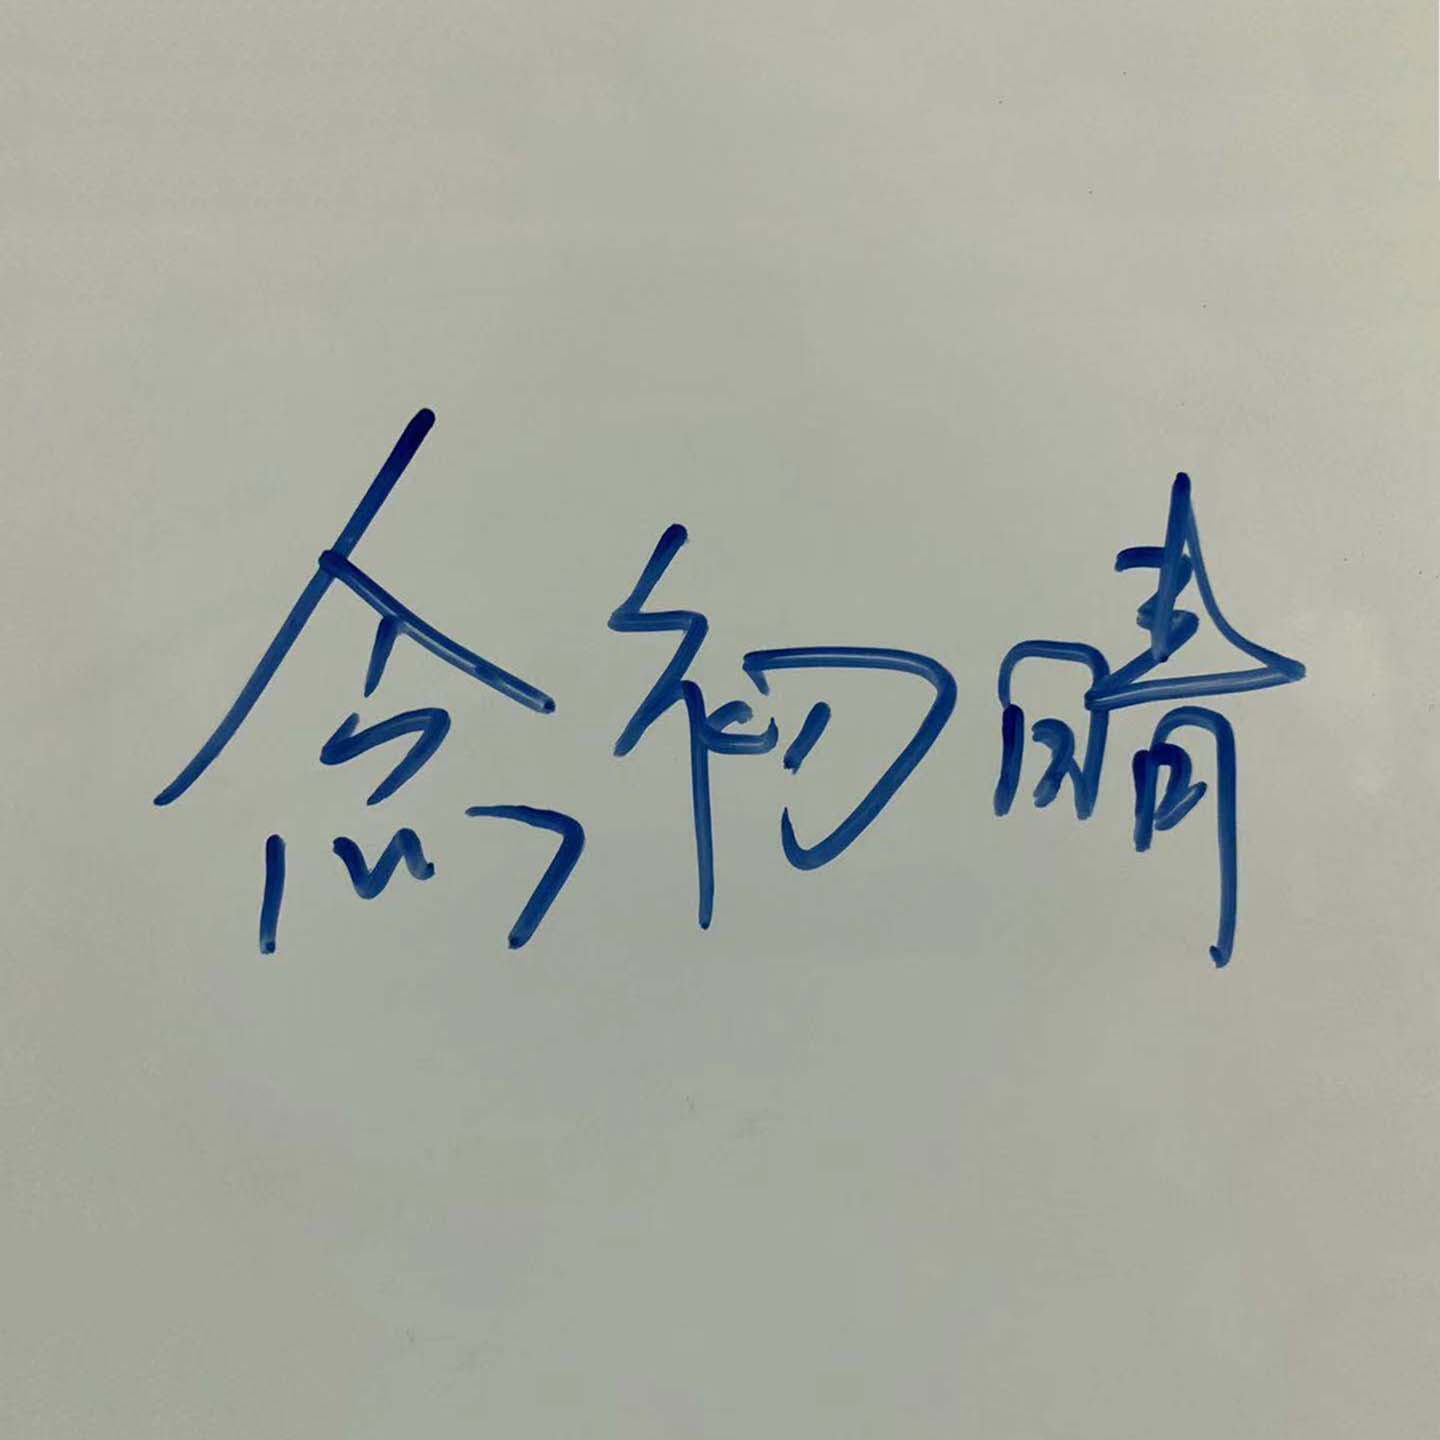 念初晴